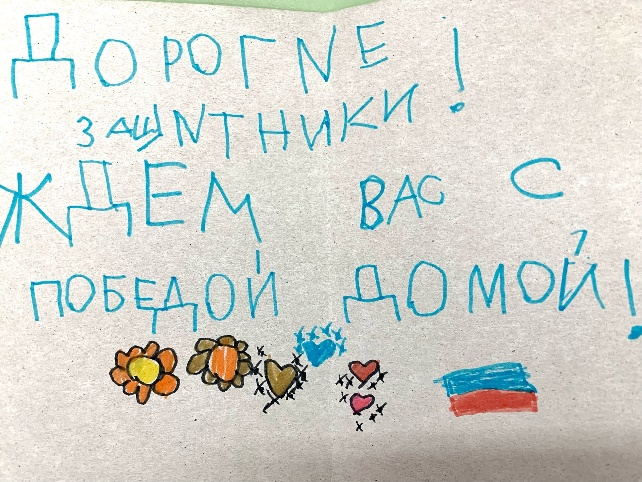 ДОРОГИЕ !
ЗАЩИТНИКИ
ЖДЕМ ВАС С
ПОБЕДОЙ ДОМОЙ!